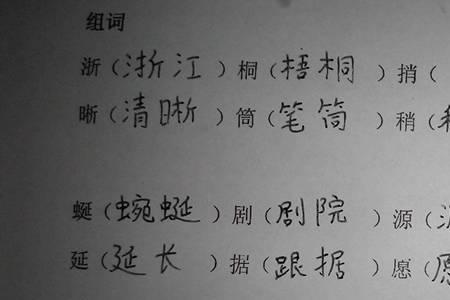 组词
浙（浙江）桐（梧桐）捎（
晰（清晰）筒（笔筒）稍（
蜒（蜿蜒）剧（剧院）源（
延（延长）据（跟据）愿（愿